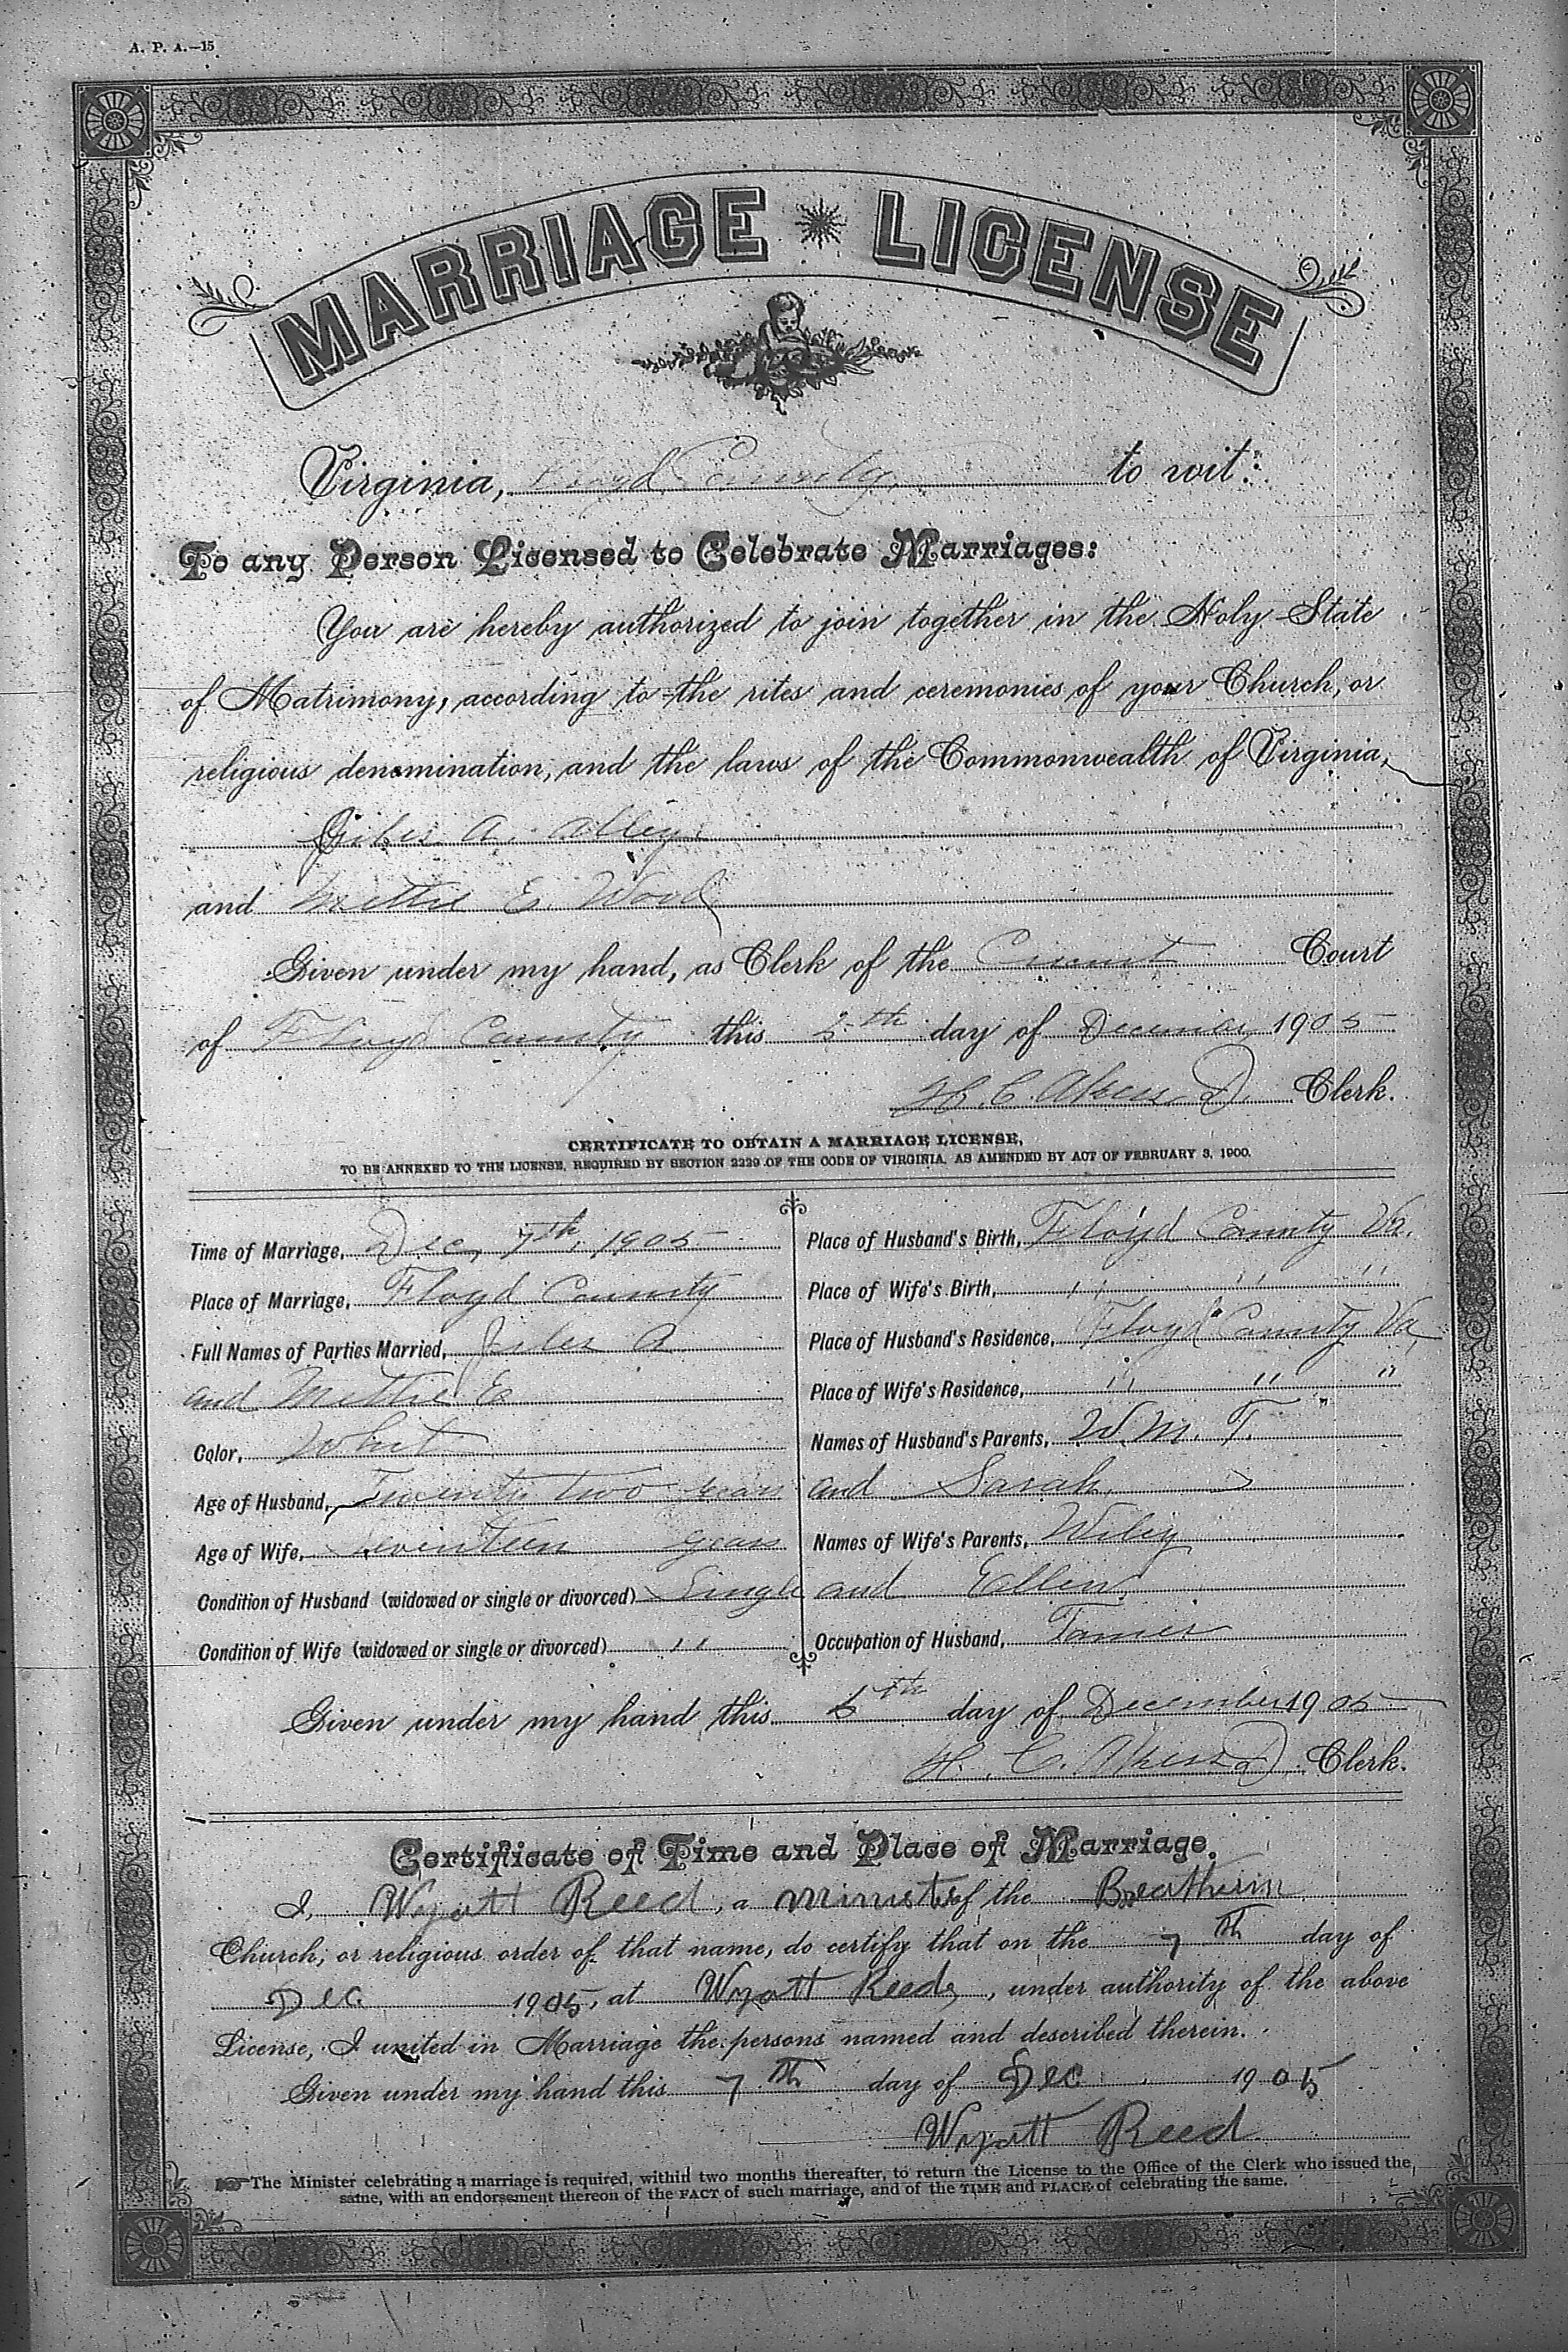 A. P. A.—15
MARRIAGE LICENSE
Virginia, Floyd County, to wit:
To any Person Licensed to Celebrate Marriages:
You are hereby authorized to join together in the Holy State
of Matrimony, according to the rites and ceremonies of your Church, or
religious denomination, and the laws of the Commonwealth of Virginia,
Giles A. Alley
and Mettie E. Wood
Given under my hand, as Clerk of the Court
of Floyd County this day of December 1905
H. C. Akers D. Clerk.
CERTIFICATE TO OBTAIN A MARRIAGE LICENSE,
TO BE ANNEXED TO THE LICENSE, REQUIRED BY SECTION 2229 OF THE CODE OF VIRGINIA, AS AMENDED BY ACT OF FEBRUARY 3, 1900.
Time of Marriage, Dec, 7th, 1905
Place of Marriage, Floyd County
Full Names of Parties Married, Giles A
and Mettie E
Color, Whit
Age of Husband, Twenty two years
Age of Wife, Seventeen years
Condition of Husband (widowed or single or divorced) Single
Condition of Wife (widowed or single or divorced) " "
Place of Husband's Birth, Floyd County Va.
Place of Wife's Birth, " " "
Place of Husband's Residence, Floyd County Va
Place of Wife's Residence, " " "
Names of Husband's Parents, W. M. T.
and Sarah
Names of Wife's Parents, Wiley
and Ellen
Occupation of Husband,
Given under my hand this day of December 1905
H. C. Akers D. Clerk.
Certificate of Time and Place of Marriage.
I, Wyatt Reed, a Minister of the Breatherin
Church, or religious order of that name, do certify that on the 7th day of
Dec 1905, at Wyatt Reeds, under authority of the above
License, I united in Marriage the persons named and described therein.
Given under my hand this 7th day of Dec 1905
Wyatt Reed
The Minister celebrating a marriage is required, within two months thereafter, to return the License to the Office of the Clerk who issued the
same, with an endorsement thereon of the FACT of such marriage, and of the TIME and PLACE of celebrating the same.